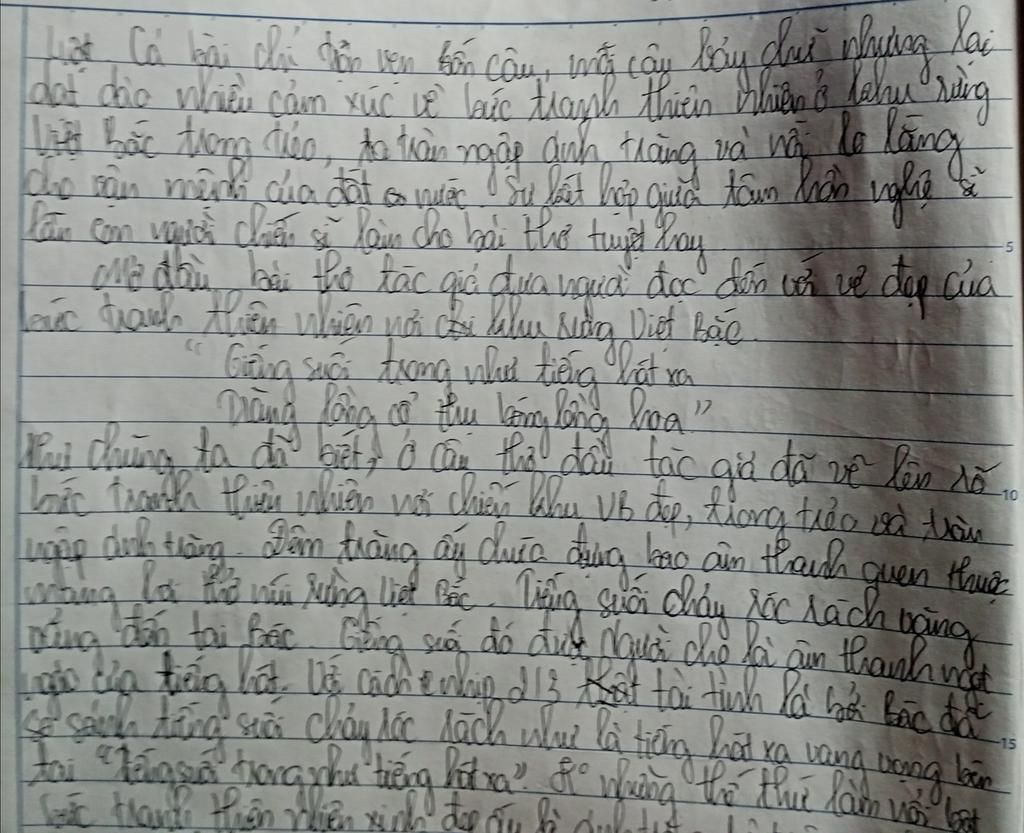 Cả bài chỉ vẹn bốn câu, mỗi câu bảy chữ nhưng lại
dạt dào nhiều cảm xúc về bức tranh thiên nhiên ở khu rừng
Việt Bắc trong trẻo, tràn ngập ánh trăng và nỗi lo lắng
cho vận mệnh của đất nước. Sự kết hợp giữa tâm hồn nghệ sĩ
lẫn con người chiến sĩ làm cho bài thơ tuyệt hay
Mở đầu bài thơ tác giả đưa người đọc đến với vẻ đẹp của
bức tranh thiên nhiên nơi khu rừng Việt Bắc.
"Tiếng suối trong như tiếng hát xa
Trăng lồng cổ thụ bóng lồng hoa"
Như chúng ta đã biết, ở câu thơ đầu tác giả đã vẽ lên rõ
bức tranh thiên nhiên nơi chiến khu VB đẹp, trong trẻo và tràn
ngập ánh trăng. Đêm trăng ấy chứa đựng bao âm thanh quen thuộc
mang núi rừng Việt Bắc. Tiếng suối chảy róc rách văng
vẳng đến tai Bác. Tiếng suối đó được Người cho là âm thanh ngọt
ngào của tiếng hát. Với cách nhịp 2/3 tài tình là bởi Bác đã
so sánh tiếng suối chảy róc rách như là tiếng hát xa vang vọng bên
tai "tiếng suối trong như tiếng hát xa". nhường thế thứ làm
bức tranh thiên nhiên xinh đẹp ấy